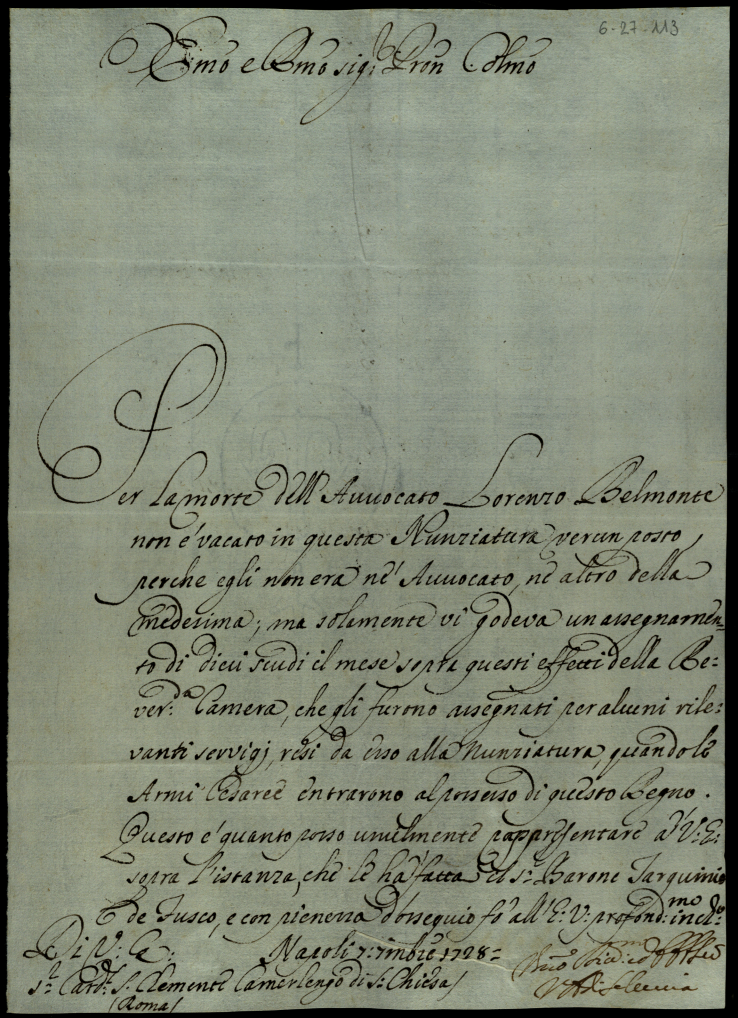 6-27-113
Emo e Rmo sig.r Pron Colmo
Per la morte dell' Avvocato Lorenzo Belmonte
non è vacato in questa Nunziatura verun posto,
perche egli non era nè Avvocato, nè altro della
medesima; ma solamente vi godeva un assegnamen-
to di dieci scudi il mese sopra questi effetti della Re-
ver.da Camera, che gli furono assegnati per alcuni rile-
vanti servigj, resi da esso alla Nunziatura, quando le
Armi Cesaree entrarono al possesso di questo Regno.
Questo è quanto posso umilmente rappresentare a V. E.
sopra l'istanza, che le ha fatta il s.r Barone Tarquinio
de Fusco, e con pienezza d'ossequio fò all' E. V. profond.mo inch.o
Di V. E. Napoli 7. 7mbre 1728
s.r Card. S. Clemente Camerlengo di S. Chiesa/
/Roma/